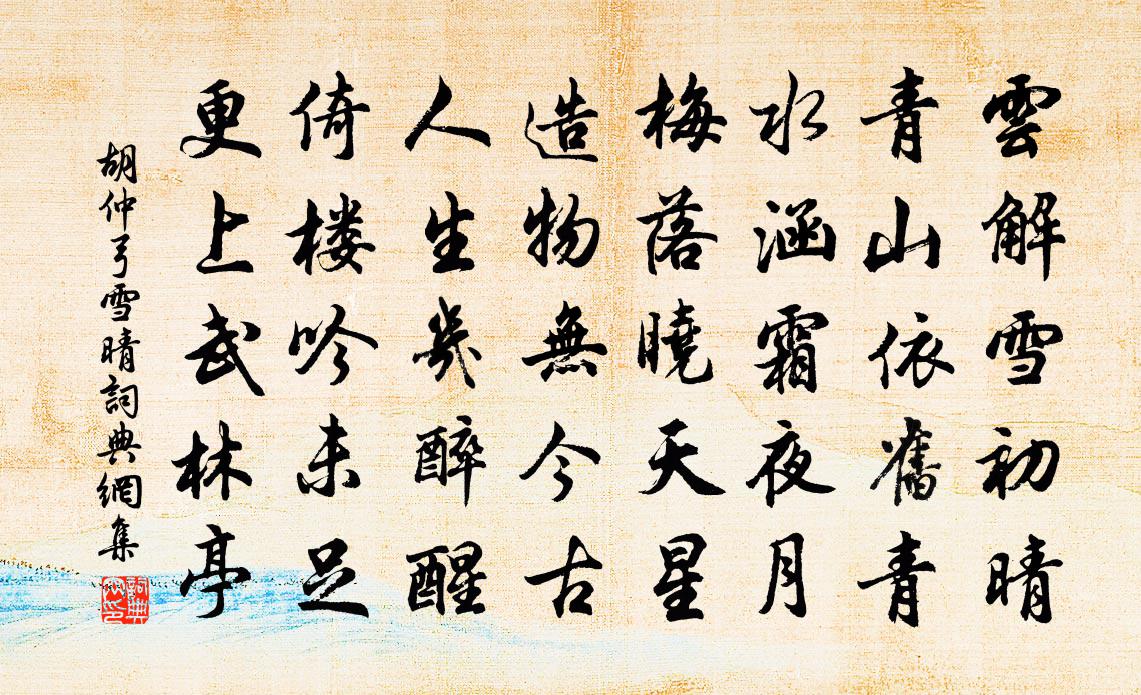 雲解雪初晴
青山依舊青
水涵霜夜月
梅落曉天星
造物無今古
人生幾醉醒
倚樓吟未足
更上武林亭
胡仲弓雪晴詞典網集